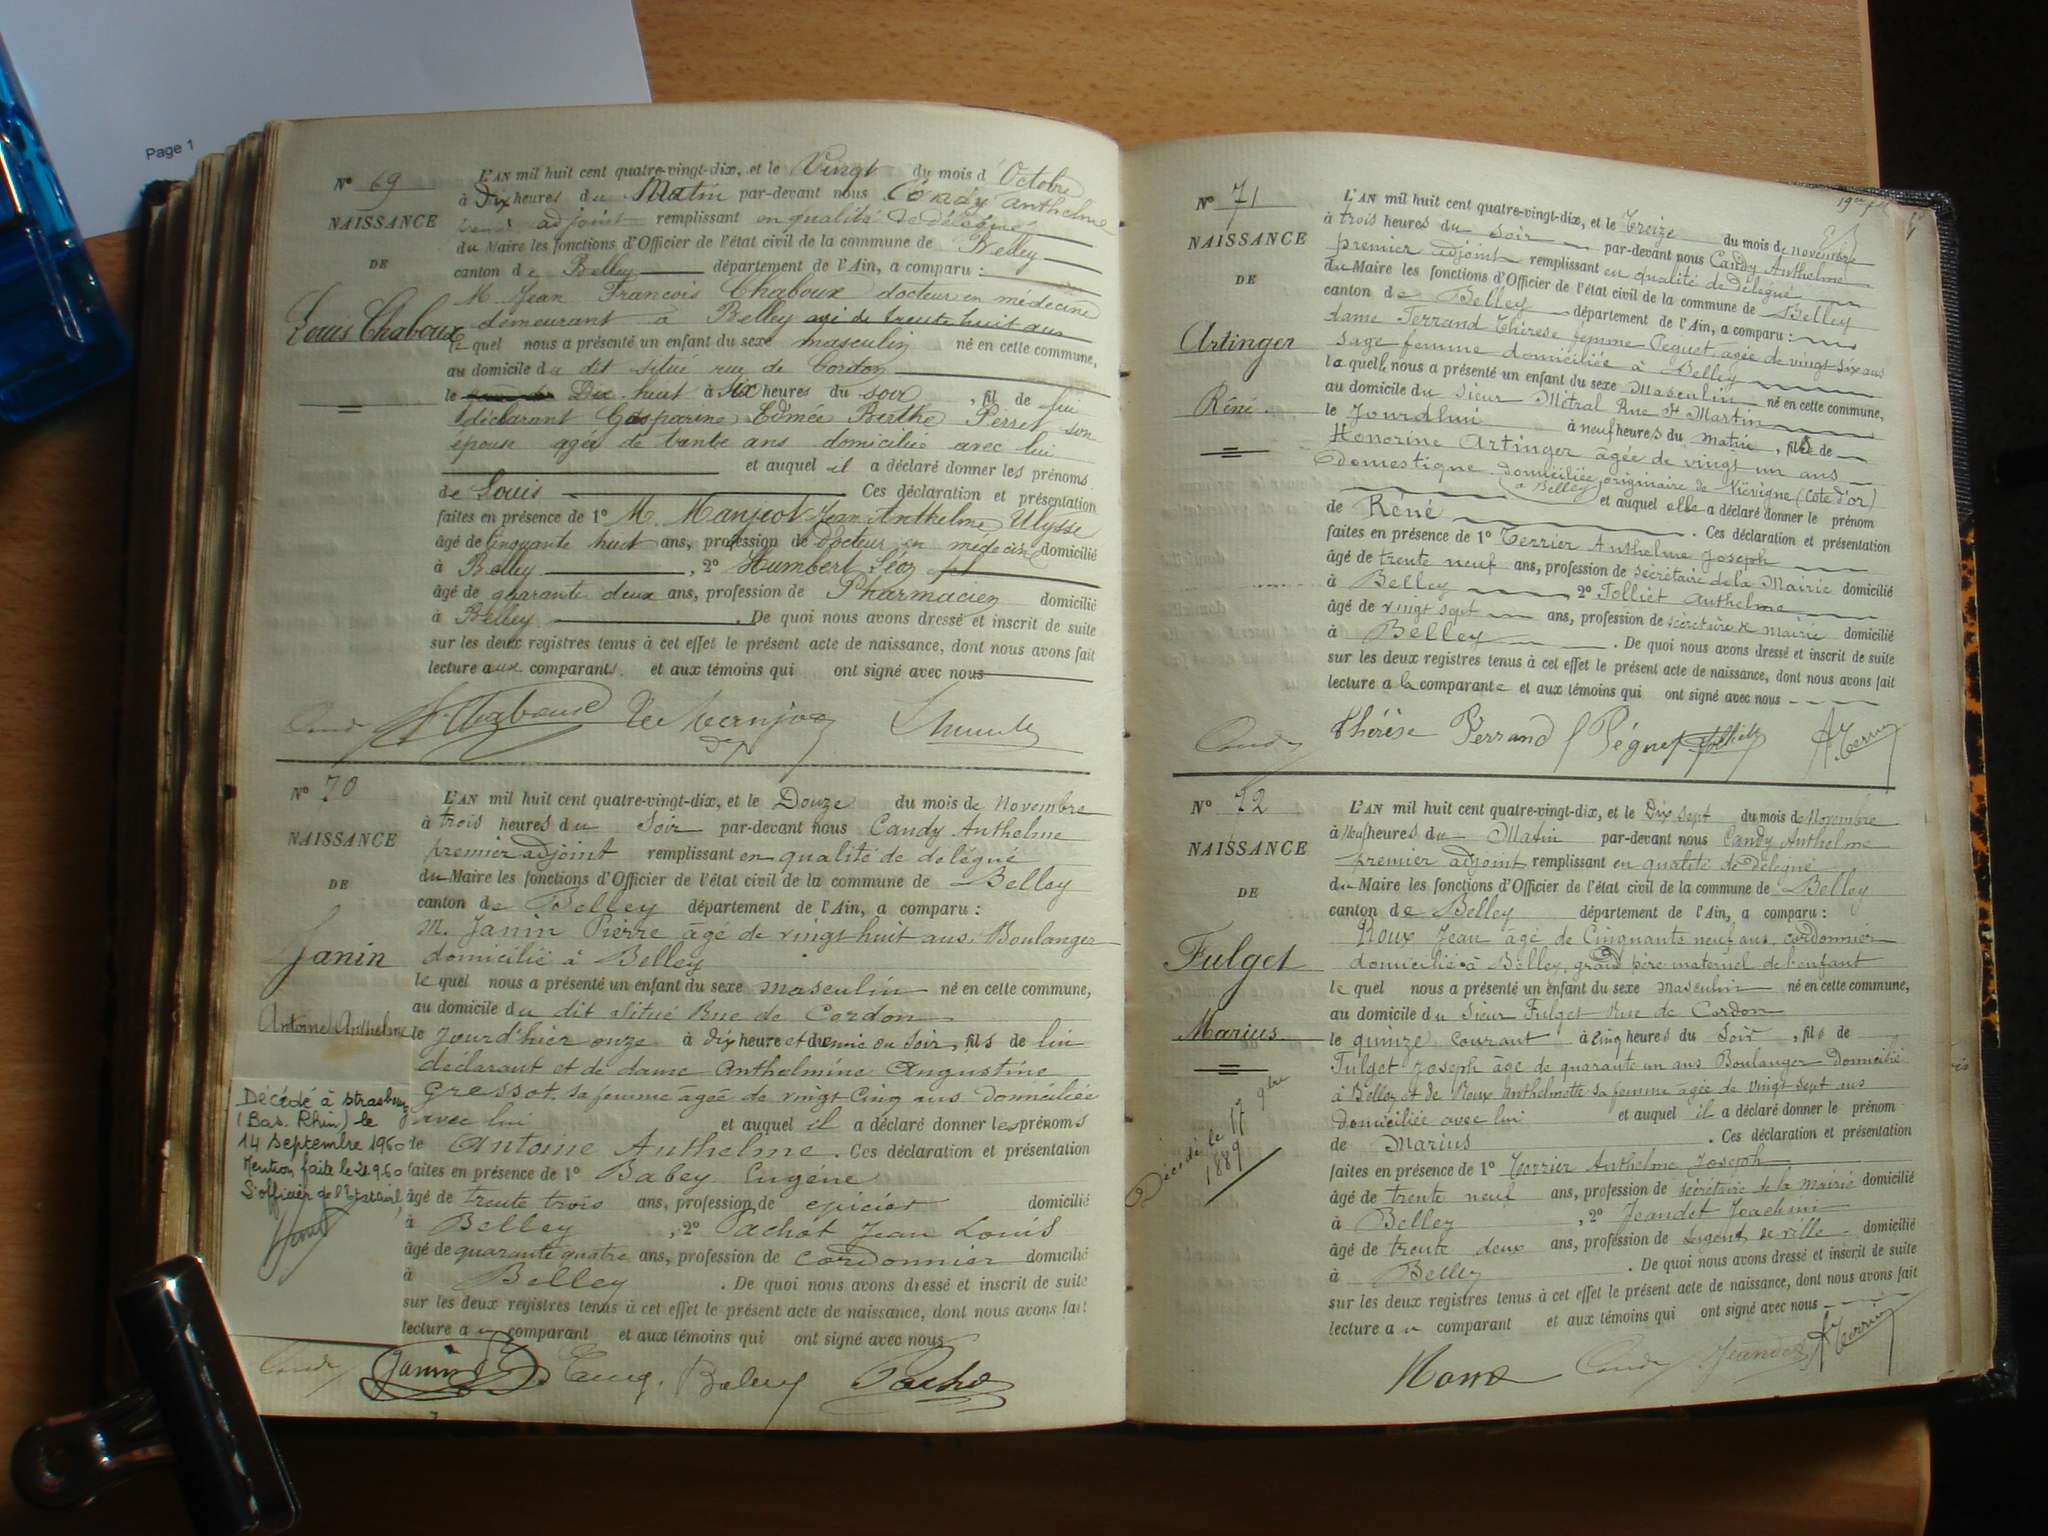 Page 1
N° 69
NAISSANCE
DE
Louis Chaboux
L'AN mil huit cent quatre-vingt-dix, et le Vingt du mois d'Octobre
à Dix heures du Matin par-devant nous Candy Anthelme
adjoint remplissant en qualité de délégué
du Maire les fonctions d'Officier de l'état civil de la commune de Belley
canton de Belley département de l'Ain, a comparu :
M. Jean François Chaboux docteur en médecine
demeurant à Belley agé de trente huit ans
le quel nous a présenté un enfant du sexe masculin né en cette commune,
au domicile du dit situé rue de Cordon
le Dix huit à six heures du soir, fil de lui
déclarant Gasparine Edmée Berthe Perret son
épouse agée de trente ans domiciliée avec lui
et auquel il a déclaré donner les prénoms
de Louis Ces déclaration et présentation
faites en présence de 1° M. Manjeot Jean Anthelme Ulysse
âgé de Cinquante huit ans, profession de Docteur en médecine domicilié
à Belley, 2° Humbert Léon
âgé de quarante deux ans, profession de Pharmacien domicilié
à Belley. De quoi nous avons dressé et inscrit de suite
sur les deux registres tenus à cet effet le présent acte de naissance, dont nous avons fait
lecture aux comparants. et aux témoins qui ont signé avec nous
N° 70
NAISSANCE
DE
Janin
Antoine Anthelme
L'AN mil huit cent quatre-vingt-dix, et le Douze du mois de Novembre
à trois heures du Soir par-devant nous Candy Anthelme
premier adjoint remplissant en qualité de délégué
du Maire les fonctions d'Officier de l'état civil de la commune de Belley
canton de Belley département de l'Ain, a comparu :
M. Janin Pierre agé de vingt huit ans, Boulanger
domicilié à Belley
le quel nous a présenté un enfant du sexe masculin né en cette commune,
au domicile du dit situé Rue de Cordon
le jour d'hier onze à dix heure et demie du Soir, fils de lui
déclarant et de dame Anthelmine Augustine
Gressot, sa femme âgée de vingt Cinq ans domiciliée
avec lui et auquel il a déclaré donner les prénoms
de Antoine Anthelme. Ces déclaration et présentation
faites en présence de 1° Babey Eugène
âgé de trente trois ans, profession de épicier domicilié
à Belley, 2° Pachot Jean Louis
âgé de quarante quatre ans, profession de cordonnier domicilié
à Belley. De quoi nous avons dressé et inscrit de suite
sur les deux registres tenus à cet effet le présent acte de naissance, dont nous avons fait
lecture au comparant et aux témoins qui ont signé avec nous
Décédé à Strasbourg
(Bas. Rhin) le
14 Septembre 1960
Mention faite le 21 9.60
L'officier de l'Etat civil,
Candy Janin Eug. Babey Pachot
N° 71
NAISSANCE
DE
Artinger
Réné
L'AN mil huit cent quatre-vingt-dix, et le Treize du mois de novembre
à trois heures du soir par-devant nous Candy Anthelme
premier adjoint remplissant en qualité de Délégué
du Maire les fonctions d'Officier de l'état civil de la commune de Belley
canton de Belley département de l'Ain, a comparu :
dame Ferrand Thérèse femme Peguet, agée de vingt six ans
sage femme domiciliée à Belley
la quelle nous a présenté un enfant du sexe Masculin né en cette commune,
au domicile du sieur Métral Rue St Martin
le Jourd'hui à neuf heures du matin, fils de
Honorine Artinger âgée de vingt un ans
Domestique domiciliée à Belley, originaire de (Côte d'or)
et auquel elle a déclaré donner le prénom
de Réné. Ces déclaration et présentation
faites en présence de 1° Terrier Anthelme Joseph
âgé de trente neuf ans, profession de secrétaire de la Mairie domicilié
à Belley 2° Tolliet Anthelme
âgé de vingt sept ans, profession de secrétaire de mairie domicilié
à Belley. De quoi nous avons dressé et inscrit de suite
sur les deux registres tenus à cet effet le présent acte de naissance, dont nous avons fait
lecture a la comparante et aux témoins qui ont signé avec nous
Candy Thérèse Ferrand f Péguet A. Terrier
N° 72
NAISSANCE
DE
Fulget
Marius
Décédé le 17 9bre
1889
L'AN mil huit cent quatre-vingt-dix, et le Dix sept du mois de Novembre
à Neuf heures du Matin par-devant nous Candy Anthelme
premier adjoint remplissant en qualité de Délégué
du Maire les fonctions d'Officier de l'état civil de la commune de Belley
canton de Belley département de l'Ain, a comparu :
Roux Jean agé de Cinquante neuf ans, cordonnier
domicilié à Belley, grand père maternel de l'enfant
le quel nous a présenté un enfant du sexe masculin né en cette commune,
au domicile du Sieur Fulget Rue de Cordon
le quinze courant à cinq heures du Soir, fils de
Fulget Joseph âgé de quarante un ans Boulanger Domicilié
à Belley et de Roux Anthelmette sa femme agée de vingt sept ans
domiciliée avec lui et auquel il a déclaré donner le prénom
de Marius. Ces déclaration et présentation
faites en présence de 1° Terrier Anthelme Joseph
âgé de trente neuf ans, profession de secrétaire de la mairie domicilié
à Belley, 2° Jeandet Joachim
âgé de trente deux ans, profession de sergent de ville domicilié
à Belley. De quoi nous avons dressé et inscrit de suite
sur les deux registres tenus à cet effet le présent acte de naissance, dont nous avons fait
lecture au comparant et aux témoins qui ont signé avec nous
Roux Candy Jeandet A. Terrier